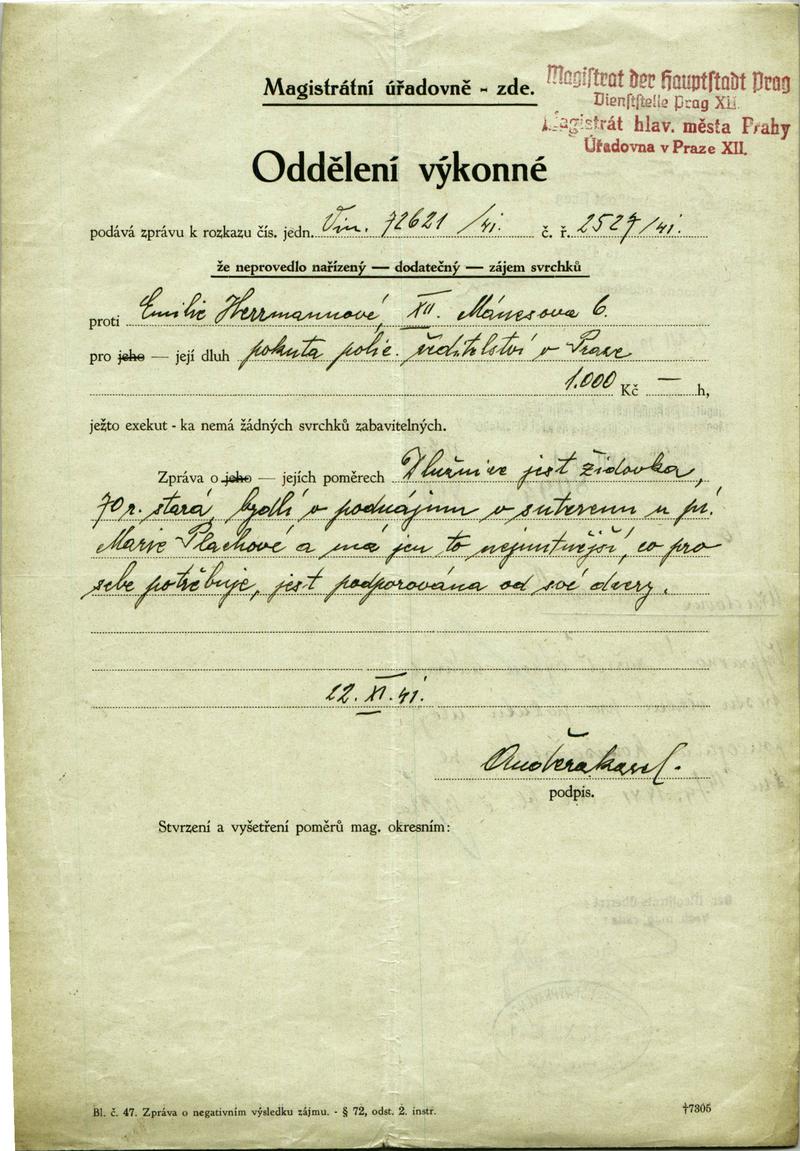 Magistrátní úřadovně - zde.
Magistrat der Hauptstadt Prag
Dienststelle Prag XII.
Magistrát hlav. města Prahy
Úřadovna v Praze XII.
Oddělení výkonné
podává zprávu k rozkazu čís. jedn. Vin. 72621/41. č. ř. 2527/41.
že neprovedlo nařízený — dodatečný — zájem svrchků
proti Emilie Herrmannové, XII. Mánesova 6.
pro jeho — její dluh pokuta polic. ředitelství v Praze
1.000 Kč — h,
ježto exekut - ka nemá žádných svrchků zabavitelných.
Zpráva o jeho — jejích poměrech Dlužnice jest židovka,
70 r. stará, bydlí v podnájmu v suterenu u pí.
Marie Plachové a má jen to nejnutnější, co pro
sebe potřebuje, jest podporována od své dcery.
22. XI. 41.
podpis.
Stvrzení a vyšetření poměrů mag. okresním:
Bl. č. 47. Zpráva o negativním výsledku zájmu. - § 72, odst. 2. instr.
†7305